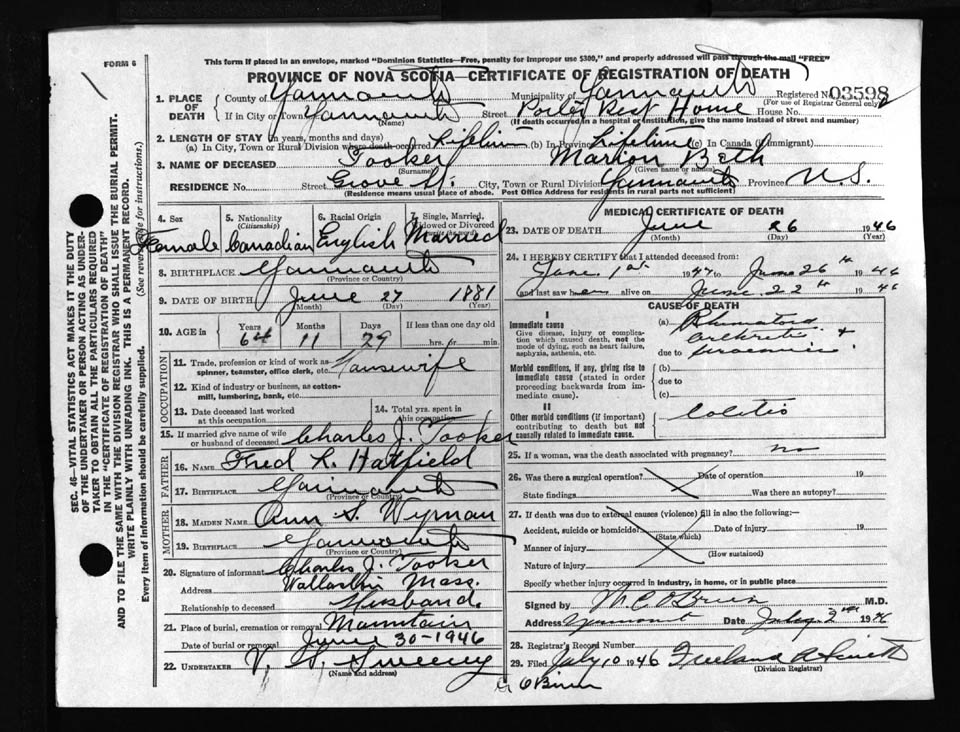 FORM 6
This form if placed in an envelope, marked "Dominion Statistics—Free, penalty for improper use $300," and properly addressed will pass through the mail "FREE"
PROVINCE OF NOVA SCOTIA—CERTIFICATE OF REGISTRATION OF DEATH
1. PLACE OF DEATH County of Yarmouth Municipality of Yarmouth Registered No. 03598
(For use of Registrar General only)
If in City or Town Yarmouth Street Rest Home House No.
(Name) (If death occurred in a hospital or institution, give the name instead of street and number)
2. LENGTH OF STAY (in years, months and days)
(a) In City, Town or Rural Division where death occurred Lifetime (b) In Province Lifetime (c) In Canada (if immigrant)
3. NAME OF DECEASED Tooker Marion Beth
(Surname) (Given name or names)
RESIDENCE No. Street Grove St. City, Town or Rural Division Yarmouth Province N.S.
(Residence means usual place of abode. Post Office Address for residents in rural parts not sufficient)
4. Sex Female
5. Nationality (Citizenship) Canadian
6. Racial Origin English
7. Single, Married, Widowed or Divorced (write the word) Married
8. BIRTHPLACE Yarmouth
(Province or Country)
9. DATE OF BIRTH June 27 1881
(Month) (Day) (Year)
10. AGE in Years Months Days If less than one day old
64 11 29 hrs. or min.
OCCUPATION
11. Trade, profession or kind of work as spinner, teamster, office clerk, etc. Housewife
12. Kind of industry or business, as cotton-mill, lumbering, bank, etc.
13. Date deceased last worked at this occupation
14. Total yrs. spent in this occupation
15. If married give name of wife or husband of deceased Charles J. Tooker
FATHER
16. NAME Fred R. Hatfield
17. BIRTHPLACE Yarmouth
(Province or Country)
MOTHER
18. MAIDEN NAME Ann S. Wyman
19. BIRTHPLACE Yarmouth
(Province or Country)
20. Signature of informant Charles J. Tooker
Address Mass.
Relationship to deceased Husband.
21. Place of burial, cremation or removal Mountain
Date of burial or removal June 30-1946
22. UNDERTAKER V. S. Sweeny
(Name and address)
MEDICAL CERTIFICATE OF DEATH
23. DATE OF DEATH June 26 1946
(Month) (Day) (Year)
24. I HEREBY CERTIFY that I attended deceased from:
1st 19 to June 26th 1946
(and last saw her alive on June 22th 1946
CAUSE OF DEATH
I
Immediate cause
Give disease, injury or complication which caused death, not the mode of dying, such as heart failure, asphyxia, asthenia, etc.
(a) Rhumatoid
arthritis
due to
Morbid conditions, if any, giving rise to immediate cause (stated in order proceeding backwards from immediate cause).
(b)
due to
(c)
II
Other morbid conditions (if important) contributing to death but not causally related to immediate cause.
Colitis
25. If a woman, was the death associated with pregnancy? no
26. Was there a surgical operation? Date of operation 19
State findings Was there an autopsy?
27. If death was due to external causes (violence) fill in also the following:
Accident, suicide or homicide? Date of injury 19
(State which)
Manner of injury
(How sustained)
Nature of injury
Specify whether injury occurred in industry, in home, or in public place
Signed by M C O'Brien M.D.
Address Yarmouth Date July 2nd 1946
28. Registrar's Record Number
29. Filed July 10 1946 Freeland
(Division Registrar)
O'Brien
SEC. 46—VITAL STATISTICS ACT MAKES IT THE DUTY
OF THE UNDERTAKER OR PERSON ACTING AS UNDER-
TAKER TO OBTAIN ALL THE PARTICULARS REQUIRED
IN THE "CERTIFICATE OF REGISTRATION OF DEATH"
AND TO FILE THE SAME WITH THE DIVISION REGISTRAR WHO SHALL ISSUE THE BURIAL PERMIT.
WRITE PLAINLY WITH UNFADING INK. THIS IS A PERMANENT RECORD.
Every item of information should be carefully supplied. (See reverse side for instructions.)